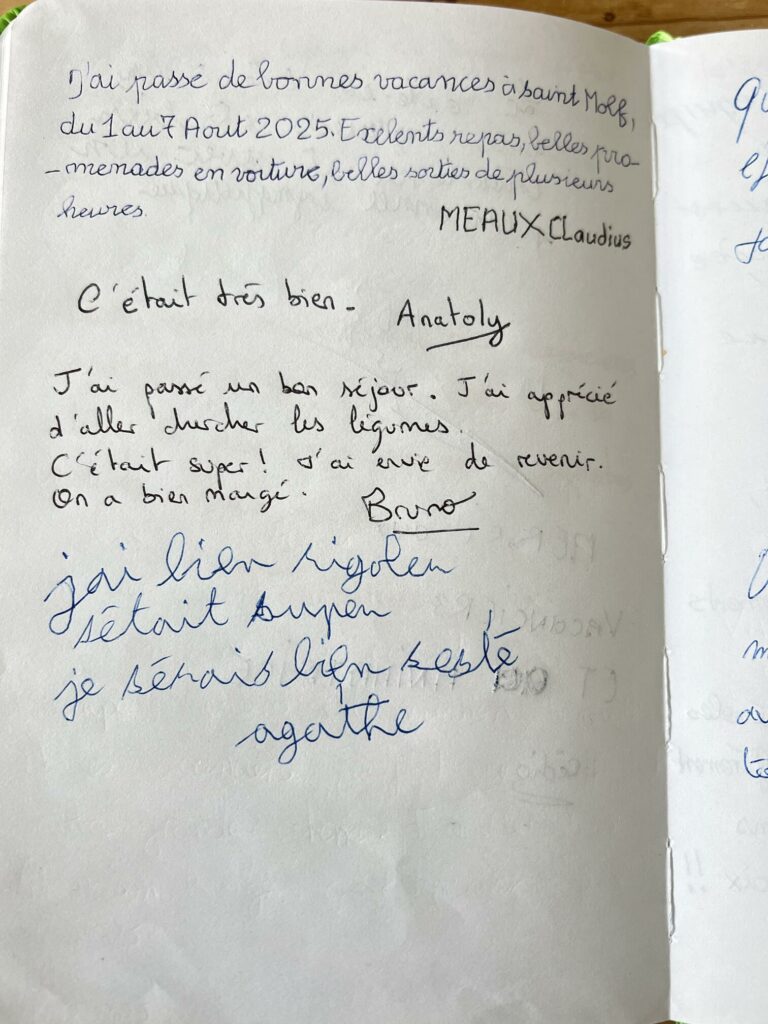 J'ai passé de bonnes vacances à saint Molf,
du 1 au 7 Aout 2025. Exelents repas, belles pro-
-menades en voiture, belles sorties de plusieurs
heures.
MEAUX Claudius
C'était très bien.
Anatoly
J'ai passé un bon séjour. J'ai apprécié
d'aller chercher les légumes.
C'était super! J'ai envie de revenir.
On a bien mangé.
Bruno
j'ai bien rigoler
s'était super
je sérais bien resté
agathe